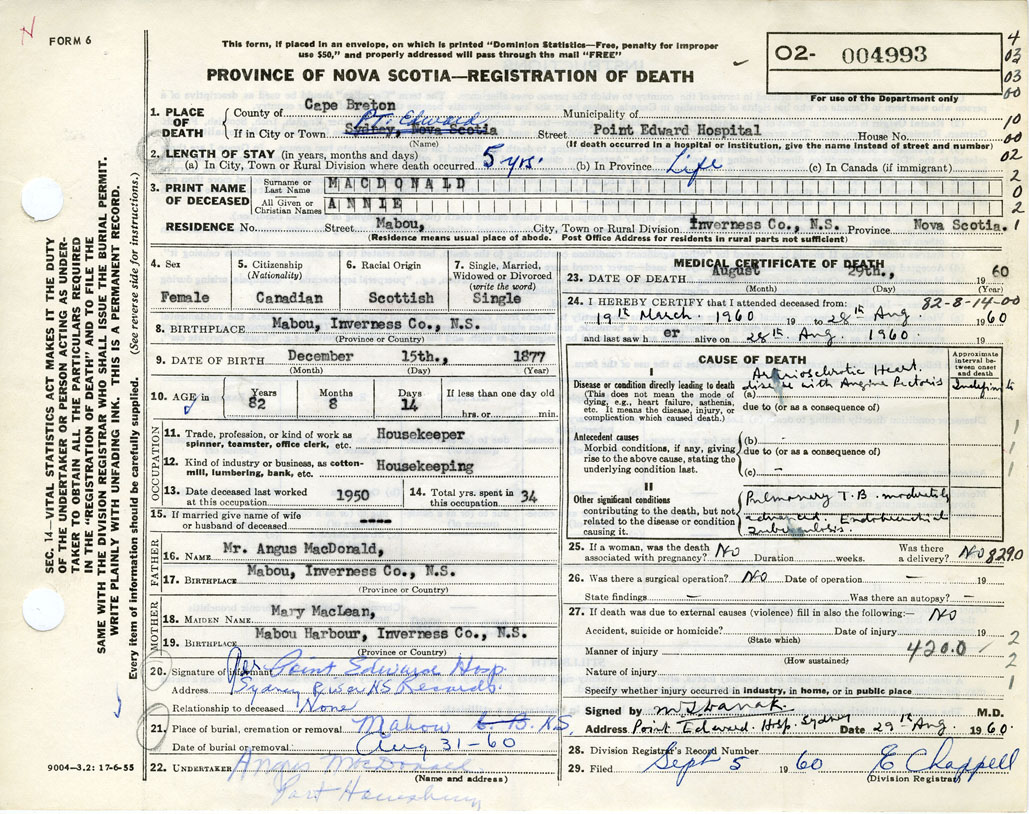 N
FORM 6
This form, if placed in an envelope, on which is printed "Dominion Statistics—Free, penalty for improper
use $50," and properly addressed will pass through the mail "FREE"
PROVINCE OF NOVA SCOTIA—REGISTRATION OF DEATH
02- 004993
For use of the Department only
4
03
2
03
00
10
00
02
2
0
2
1
1. PLACE OF DEATH
County of Cape Breton Municipality of
If in City or Town Sydney, Nova Scotia Pt. Edward Street Point Edward Hospital House No.
(Name) (If death occurred in a hospital or institution, give the name instead of street and number)
2. LENGTH OF STAY (in years, months and days)
(a) In City, Town or Rural Division where death occurred 5 yrs. (b) In Province Life (c) In Canada (if immigrant)
3. PRINT NAME OF DECEASED
Surname or Last Name MACDONALD
All Given or Christian Names ANNIE
RESIDENCE No. Street Mabou, City, Town or Rural Division Inverness Co., N.S. Province Nova Scotia.
(Residence means usual place of abode. Post Office Address for residents in rural parts not sufficient)
4. Sex
Female
5. Citizenship
(Nationality)
Canadian
6. Racial Origin
Scottish
7. Single, Married,
Widowed or Divorced
(write the word)
Single
8. BIRTHPLACE Mabou, Inverness Co., N.S.
(Province or Country)
9. DATE OF BIRTH December 15th., 1877
(Month) (Day) (Year)
10. AGE in Years 82 Months 8 Days 14 If less than one day old
hrs. or min.
OCCUPATION
11. Trade, profession, or kind of work as
spinner, teamster, office clerk, etc. Housekeeper
12. Kind of industry or business, as cotton-
mill, lumbering, bank, etc. Housekeeping
13. Date deceased last worked
at this occupation 1950
14. Total yrs. spent in
this occupation 34
15. If married give name of wife
or husband of deceased ----
FATHER
16. NAME Mr. Angus MacDonald,
17. BIRTHPLACE Mabou, Inverness Co., N.S.
(Province or Country)
MOTHER
18. MAIDEN NAME Mary MacLean,
19. BIRTHPLACE Mabou Harbour, Inverness Co., N.S.
(Province or Country)
20. Signature of informant Per Point Edward Hosp.
Address Sydney River NS Records.
Relationship to deceased None
21. Place of burial, cremation or removal Mabou C.B. NS
Date of burial or removal Aug 31-60
22. UNDERTAKER Angus McDonald
Port
(Name and address)
9004-3.2: 17-6-55
MEDICAL CERTIFICATE OF DEATH
23. DATE OF DEATH August 29th., 1960
(Month) (Day) (Year)
82-8-14-00
24. I HEREBY CERTIFY that I attended deceased from:
19th March. 1960 19 to 28th Aug. 1960
and last saw her alive on 28th Aug. 1960. 19
CAUSE OF DEATH
Approximate
interval be-
tween onset
and death
I
Disease or condition directly leading to death
(This does not mean the mode of
dying, e.g., heart failure, asthenia,
etc. It means the disease, injury, or
complication which caused death.)
Arteriosclerotic Heart.
(a) disease with Angina Pectoris Indefinite
due to (or as a consequence of)
Antecedent causes
Morbid conditions, if any, giving
rise to the above cause, stating the
underlying condition last.
(b) -
due to (or as a consequence of)
(c) -
II
Other significant conditions
contributing to the death, but not
related to the disease or condition
causing it.
Pulmonary T.B. moderately
advanced. Endobronchial
tuberculosis.
1
1
1
25. If a woman, was the death
associated with pregnancy? No Duration weeks. Was there
a delivery? No 8290
26. Was there a surgical operation? No Date of operation — 19
State findings — Was there an autopsy? —
27. If death was due to external causes (violence) fill in also the following:— No
Accident, suicide or homicide? Date of injury 19
(State which)
Manner of injury 420.0
(How sustained)
Nature of injury
2
2
1
Specify whether injury occurred in industry, in home, or in public place
Signed by M.D.
Address Point Edward Hosp. Sydney Date 29th Aug 1960
28. Division Registrar's Record Number
29. Filed Sept 5 1960 E Chappell
(Division Registrar)
SEC. 14—VITAL STATISTICS ACT MAKES IT THE DUTY
OF THE UNDERTAKER OR PERSON ACTING AS UNDER-
TAKER TO OBTAIN ALL THE PARTICULARS REQUIRED
IN THE "REGISTRATION OF DEATH" AND TO FILE THE
SAME WITH THE DIVISION REGISTRAR WHO SHALL ISSUE THE BURIAL PERMIT.
WRITE PLAINLY WITH UNFADING INK. THIS IS A PERMANENT RECORD.
Every item of information should be carefully supplied. (See reverse side for instructions.)